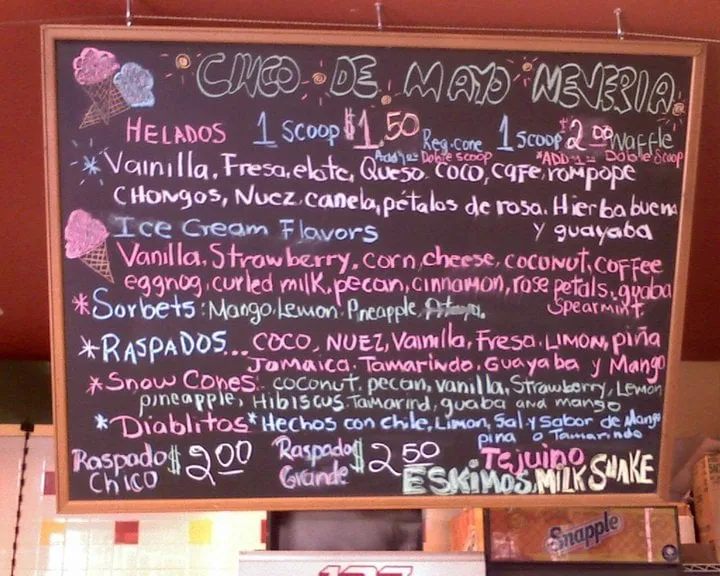 CINCO DE MAYO NEVERIA
HELADOS 1 SCOOP $1.50 Reg. cone 1 SCOOP $2.00 Waffle
Add Doble scoop *ADD Doble Scoop
* Vainilla, Fresa, elote, Queso, COCO, cafe, rompope
CHongos, Nuez, canela, pétalos de rosa. Hierba buena
y guayaba
Ice Cream Flavors
Vanilla, Strawberry, corn, cheese, coconut, COFFEE
eggnog, curled milk, pecan, cinnamon, rose petals, guaba
Spearmint
* Sorbets: Mango, Lemon, Pineapple,
* RASPADOS... COCO, NUEZ, Vainilla, Fresa, LIMON, piña
Jamaica, Tamarindo, Guayaba y Mango
* Snow Cones: coconut, pecan, vanilla, Strawberry, Lemon
pineapple, Hibiscus, Tamarind, guaba and mango
* Diablitos * Hechos con chile, Limon, Sal y Sabor de Mango
pina o Tamarindo
Raspado Chico $2.00 Raspado Grande $2.50 Tejuino
ESKIMOS, MILK SHAKE
Snapple